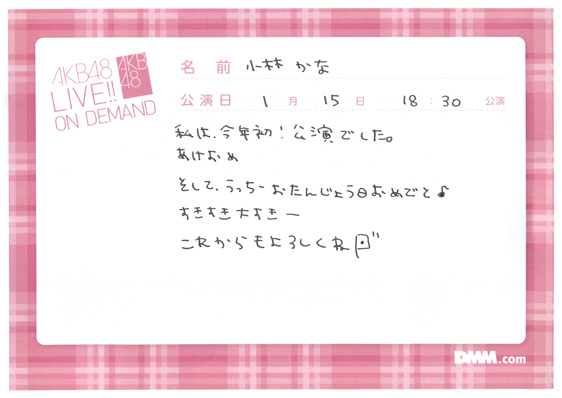 AKB48
LIVE!!
ON DEMAND
AKB
48
名前 小林 かな
公演日 1月 15日 18:30 公演
私は、今年初!公演でした。
あけおめ
そして、うっちーおたんじょう日おめでと♪
すきすき大すきー
これからもよろしくね
DMM.com